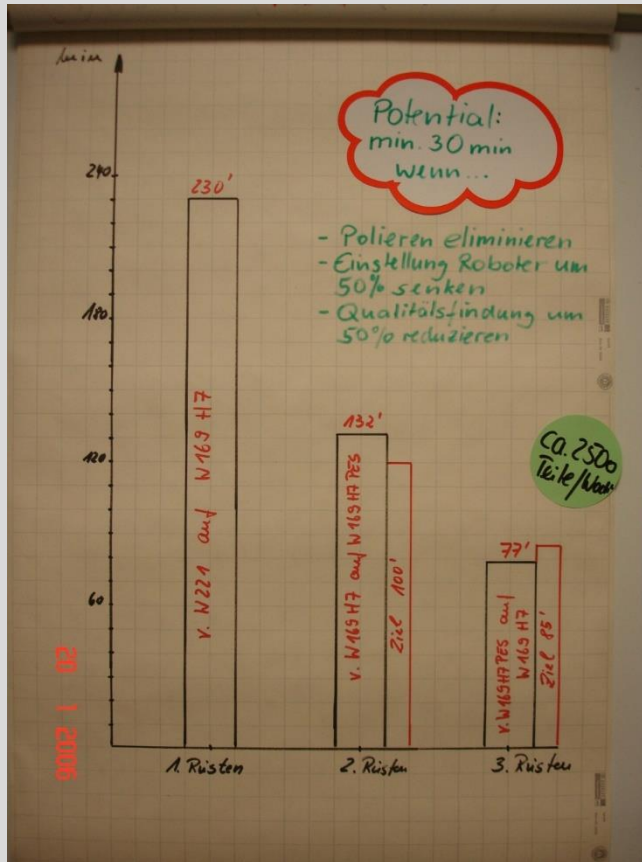 min
240
180
120
60
Potential:
min. 30 min
wenn...
- Polieren eliminieren
- Einstellung Roboter um
50% senken
- Qualitätsfindung um
50% reduzieren
Ca. 2500
Teile/Woch
230'
v. W221 auf W169 H7
132'
v. W169 H7 auf W169 H7 PES
Ziel 100'
77'
v. W169 H7 PES auf
W169 H7
Ziel 85'
1. Rüsten
2. Rüsten
3. Rüsten
20 1 2006